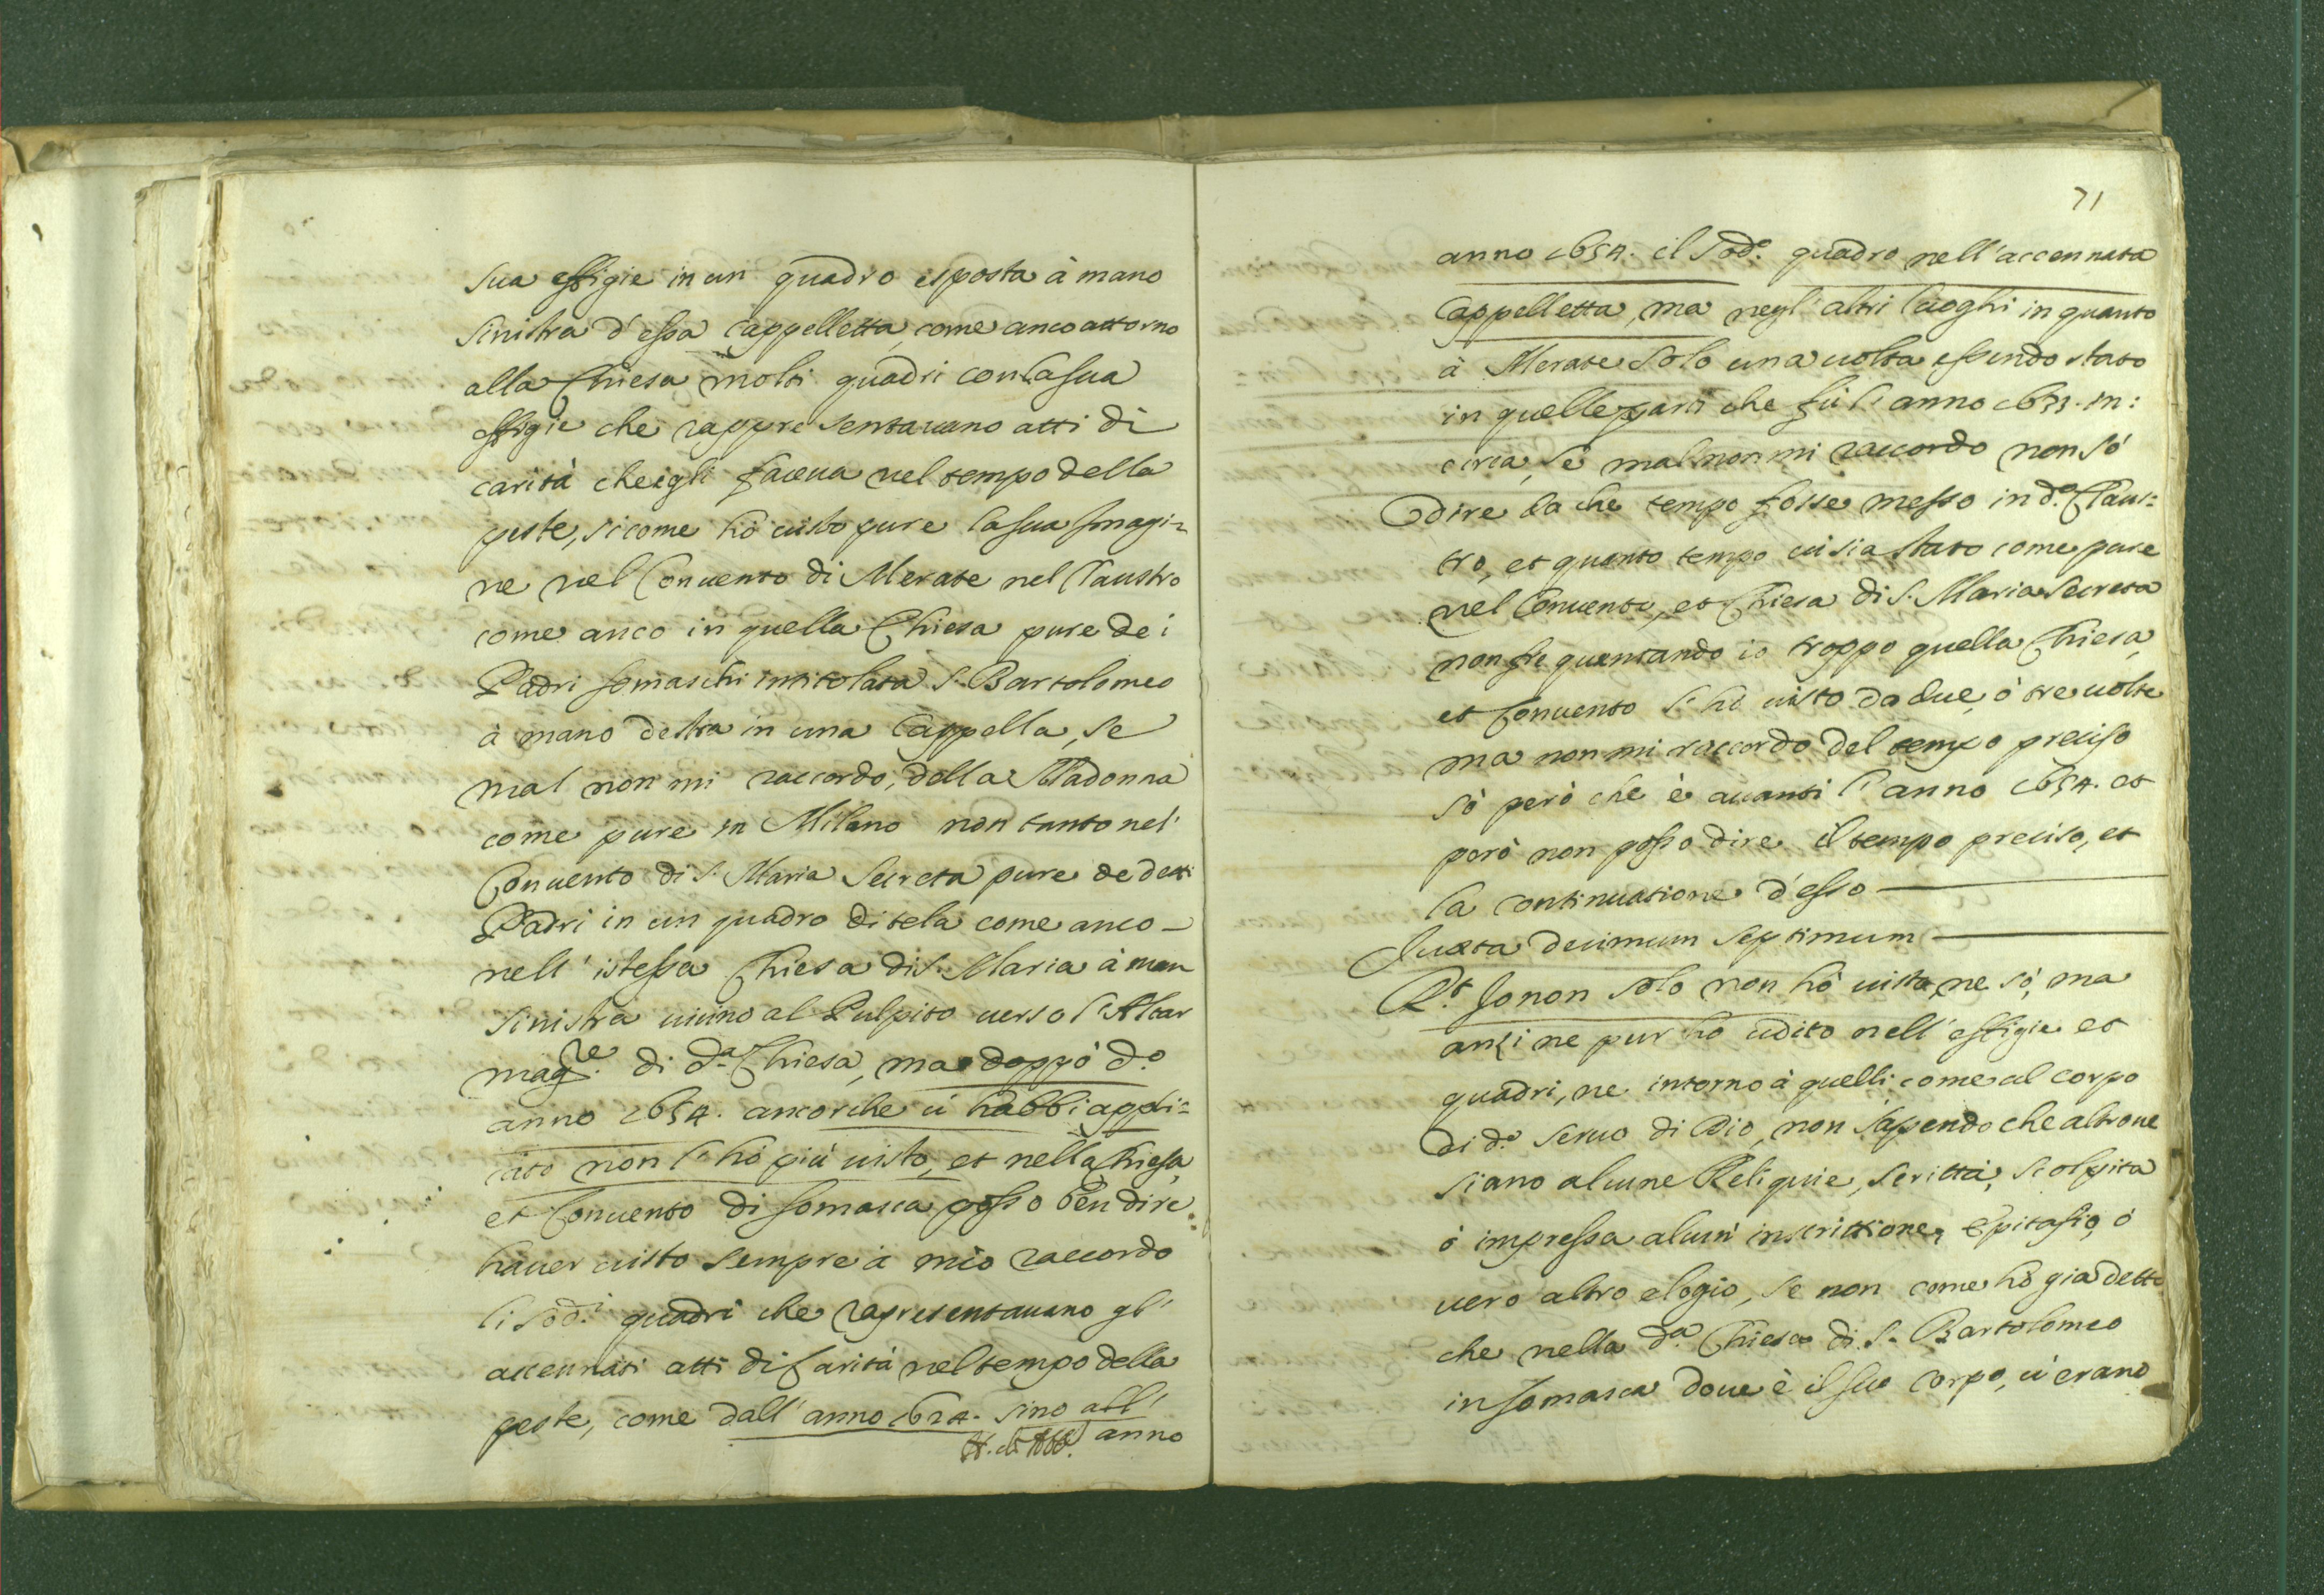 sua effigie in un quadro esposta à mano
sinistra d'essa Cappelletta, come anco attorno
alla Chiesa molti quadri con la sua
effigie che rappresentauano atti di
carità che egli faceua nel tempo della
peste, si come hò uisto pure la sua Imagi=
ne nel Conuento di Merate nel Claustro
come anco in quella Chiesa pure dei
Padri somaschi intitolata S. Bartolomeo
à mano destra in una Cappella, se
mal non mi raccordo, della Madonna
come pure in Milano non tanto nel
Conuento di S. Maria Secreta pure de detti
Padri in un quadro di tela come anco
nell' istessa Chiesa di S. Maria à man
sinistra uicino al Pulpito uerso l'Altar
magre. di da. Chiesa, ma doppò do.
anno 1654. ancorche ui habbi appli=
cato non l'hò più uisto, et nella Chiesa,
et Conuento di somasca posso ben dire
hauer uisto sempre à mio raccordo
li sodi. quadri che rapresentauano gl'
accennati atti di Carità nel tempo della
peste, come dall' anno 1624. sino all'
anno
71
anno 1654. il sodo. quadro nell'accennata
Cappelletta, ma negl' altri luoghi in quanto
à Merate solo una uolta essendo stato
in quelle parti che fù l' anno 1653. in:
circa, se mal non mi raccordo non sò
dire da che tempo fosse messo in do. Claus=
tro, et quanto tempo ui sia stato come pure
nel Conuento, et Chiesa di S. Maria Secreta
non frequentando io troppo quella Chiesa,
et Conuento l'hò uisto da due, ò tre uolte
ma non mi raccordo del tempo preciso
sò però che è auanti l' anno 1654. et
però non posso dire il tempo preciso, et
la continuatione d'esso
Iuxta decimum septimum
Rt. Io non solo non hò uisto, ne sò, ma
anzi ne pur hò udito nell' effigie et
quadri, ne intorno à quelli come al corpo
di do. seruo di Dio, non sapendo che altroue
siano alcune Reliquie, scritta, scolpita
ò impressa alcun' inscrittione, Epitafio, ò
uero altro elogio, se non come hò già detto
che nella da. Chiesa di S. Bartolomeo
in somasca doue è il suo corpo, u'erano